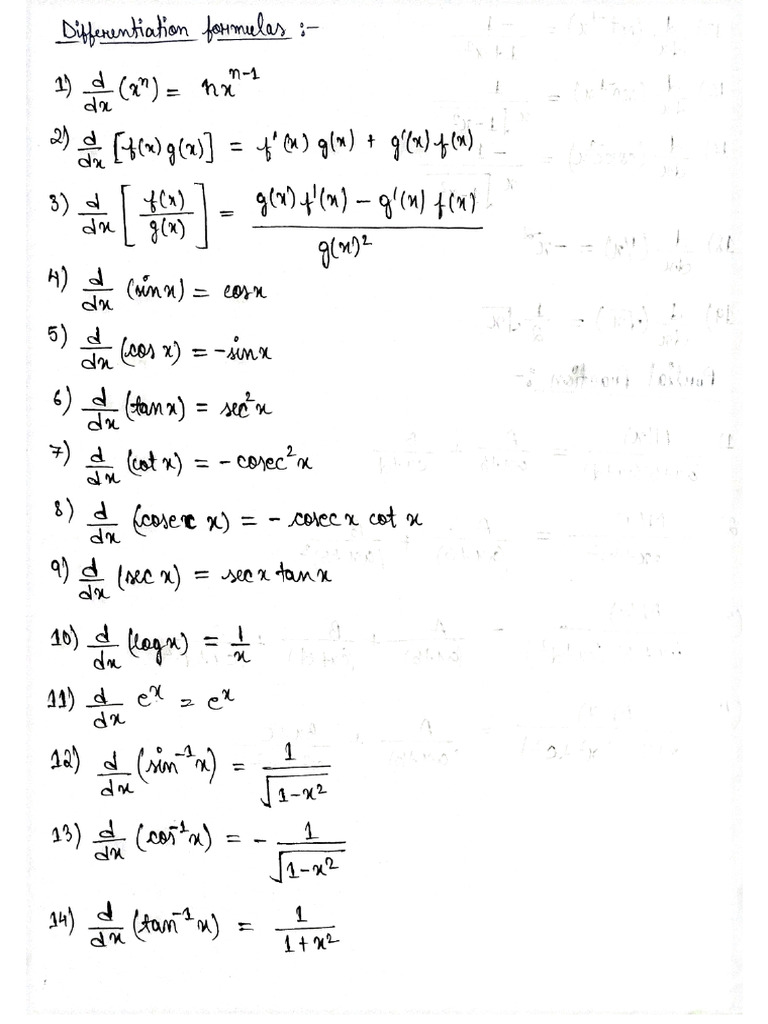 Differentiation formulas :-
1) d/dx (xⁿ) = nxⁿ⁻¹
2) d/dx [f(x) g(x)] = f'(x) g(x) + g'(x) f(x)
3) d/dx [f(x)/g(x)] = (g(x) f'(x) - g'(x) f(x))/g(x)²
4) d/dx (sin x) = cos x
5) d/dx (cos x) = - sin x
6) d/dx (tan x) = sec²x
7) d/dx (cot x) = - cosec²x
8) d/dx (cosec x) = - cosec x cot x
9) d/dx (sec x) = sec x tan x
10) d/dx (log x) = 1/x
11) d/dx eˣ = eˣ
12) d/dx (sin⁻¹x) = 1/√(1-x²)
13) d/dx (cos⁻¹x) = - 1/√(1-x²)
14) d/dx (tan⁻¹x) = 1/(1+x²)